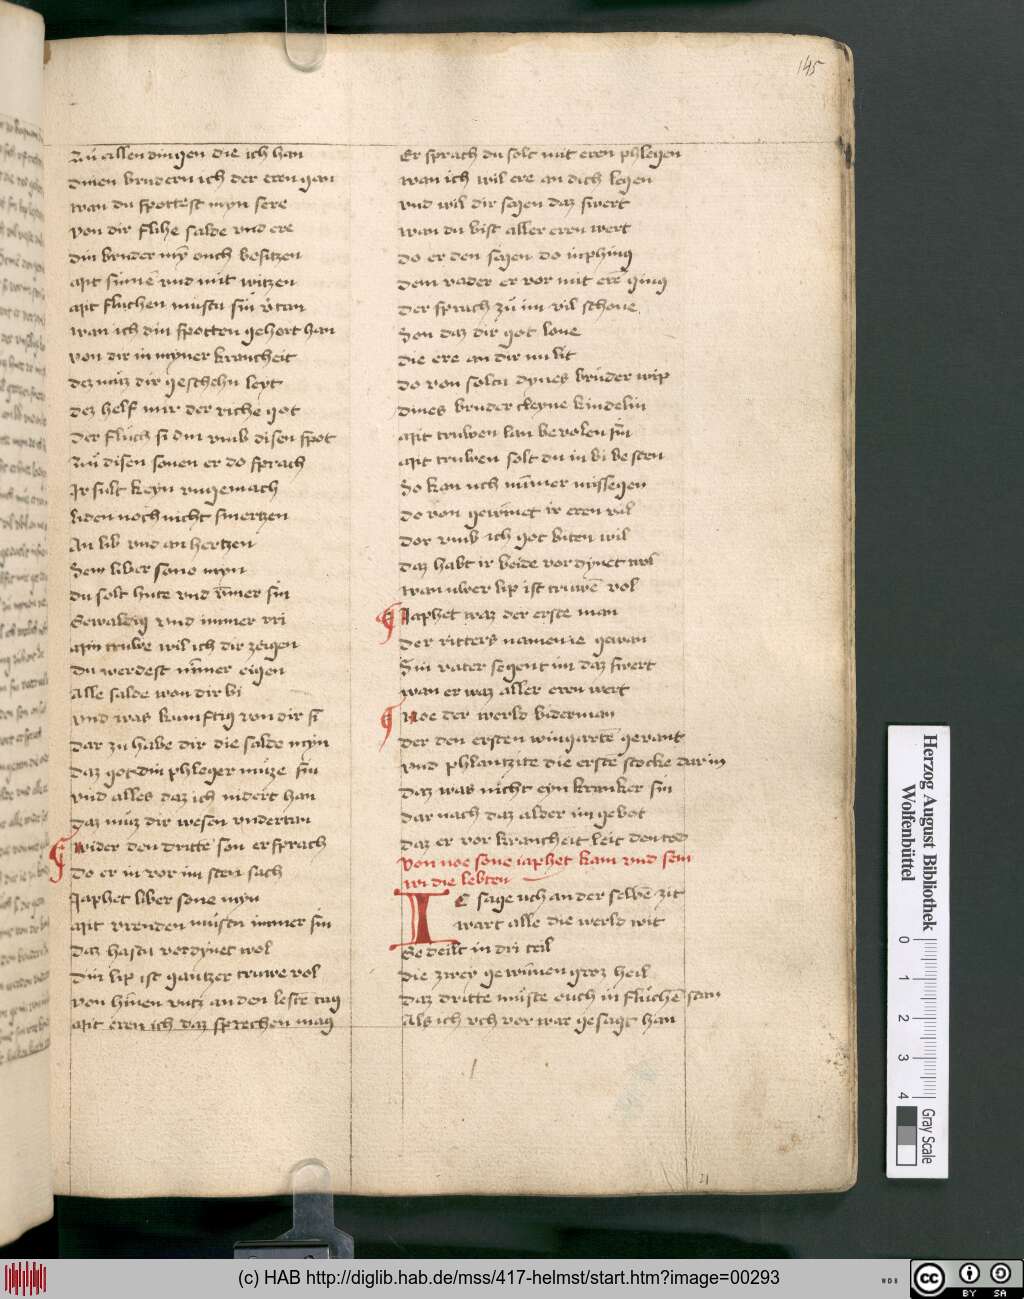 145
Zu allen dingen die ich han
dinen brudern ich der eren gan
wan du spottest myn sere
von dir flihe salde vnd ere
din bruder mỹ ouch besitzen
Mit sinnē vnd mit witzen
Mit fluchen mustu sin v̄tan
wan ich din spotten gehort han
von dir in myner krancheit
dez muz dir geschehn leyt
dez helf mir der riche got
der fluch si din vmb disen spot
Zuͦ disen sonen er do sprach
Ir sult keyn vngemach
Liden noch nicht smertzen
An lib vnd an hertzen
Sem liber sone myn
du solt hute vnd ȳmer sin
Gewaldig vnd immer vri
Myn truwe wil ich dir zeigen
du werdest nȳmer eigen
Alle salde won dir bi
vnd was kumftig von dir si
dar zu habe dir die salde myn
daz got din phleger muze sin
vnd alles daz ich nidert han
daz muz dir wesen vndertan
wider den dritte son er sprach
do er in vor im sten sach
Japhet liber sone myn
Mit vrenden mustu immer sin
daz hastu verdynet wol
din lip ist gantzer truwe vol
von hinen vntz an den leste tag
Mit eren ich daz sprechen mag
Er sprach du solt mit eren phlegen
wan ich wil ere an dich legen
vnd wil dir segen daz swert
wan du bist aller eren wert
do er den segen do inphing
dem vader er vor mit erē ging
der sprach zuͦ im vil schone
Son daz dir got lone
die ere an dir nu lit
do von soltu dynes bruder wip
dines bruder cleyne kindelin
Mit truwen lan bevolen sin
Mit truwen solt du in bi besten
So kan uch nȳmer missegen
do von gewinet ir eren vil
dor vmb ich got biten wil
daz habt ir beide vordynet wol
wan uwer lip ist truwē vol
Japhet waz der erste man
der ritters namen ie gewan
Sin vater segent im daz swert
wan er waz aller eren wert
Noe der werld biderman
der den ersten wingartē gevant
vnd phlantzite die erste stocke dar in
daz was nicht eyn kranker sin
dar nach daz alder im gebot
daz er vor krancheit leit den tod
von noe sone iaphet kam vnd sem
wi die lebten
IC sage uch an der selbē zit
wart alle die werld wit
Gedeilt in dri teil
die zwey gewinnen groz heil
daz dritte muste euch in fluchē stan
Als ich uch vor war gesagt han
21
Herzog August Bibliothek
Wolfenbüttel
0 1 2 3 4
Gray Scale
(c) HAB http://diglib.hab.de/mss/417-helmst/start.htm?image=00293
WDB
cc BY SA